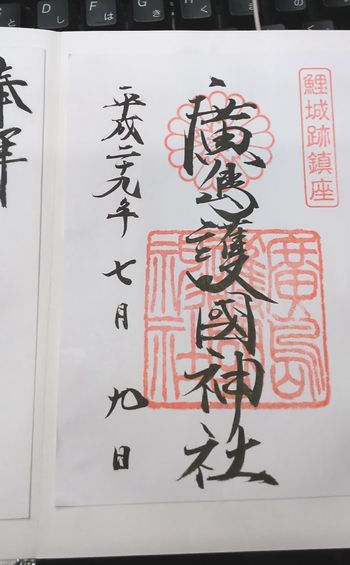 鯉城跡鎮座
廣島護國神社
廣島護國神社
平成二十九年 七月 九日
奉拝
D し
F は
G き
H く
J ま
K の